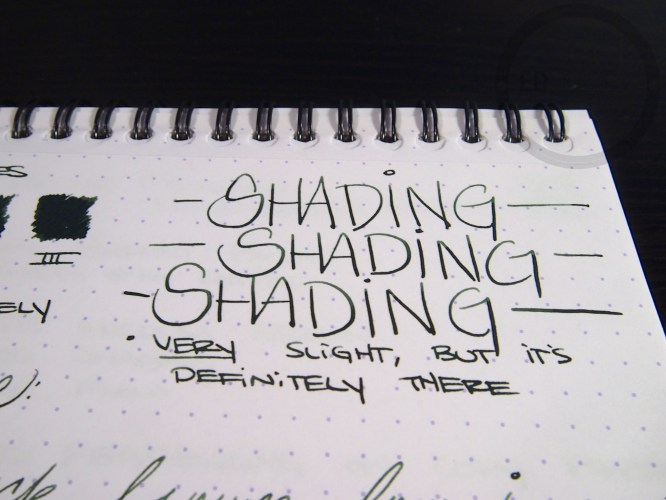 - SHADING -
- SHADING -
- SHADING -
III
· VERY SLIGHT, BUT IT'S
DEFINITELY THERE